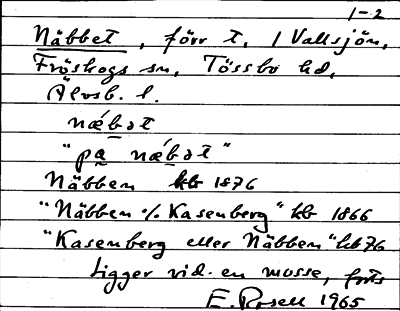 1-2
Näbbet, förr t. / Vallsjön,
Fröskogs sn, Tössbo hd,
Älvsb. l.
næ´bət
"pa næ´bət"
Näbben kb 1876
"Näbben % Kasenberg" kb 1866
"Kasenberg eller Näbben" hb 76
Ligger vid en mosse,
E. Rosell 1965